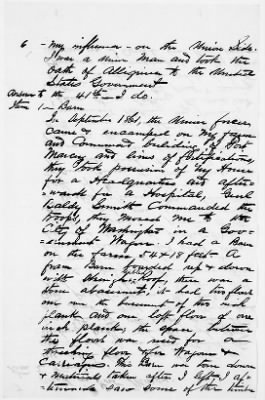 6 - my influence - on the Union Side.
I was a Union Man and took the
oath of Allegiance to the United
States Government
Answer to the 41st - I do.
Item 1 - Barn
In Sept 1861, the Union forces
came & encamped on my farm
and Commenced building of Fort
Marcy and lines of fortifications,
they took possession of my House
for a Headquarters and after
wards for a Hospital, Genl
Baldy Smith Commanded the
troops, they moved me to the
City of Washington in a Gov-
ernment Wagon. I had a Barn
on the farm 54 x 18 feet - A
fram Barn boarded up & down
with shingle roof, there was a
stone basement, it had two floors
one in the basement of two inch
plank and one loft floor of one
inch plank, the space between
the floors was used for a
threshing floor & for Wagons &
Carriages. This Barn was torn down
& Material taken after I left, af-
terwards saw some of the timber